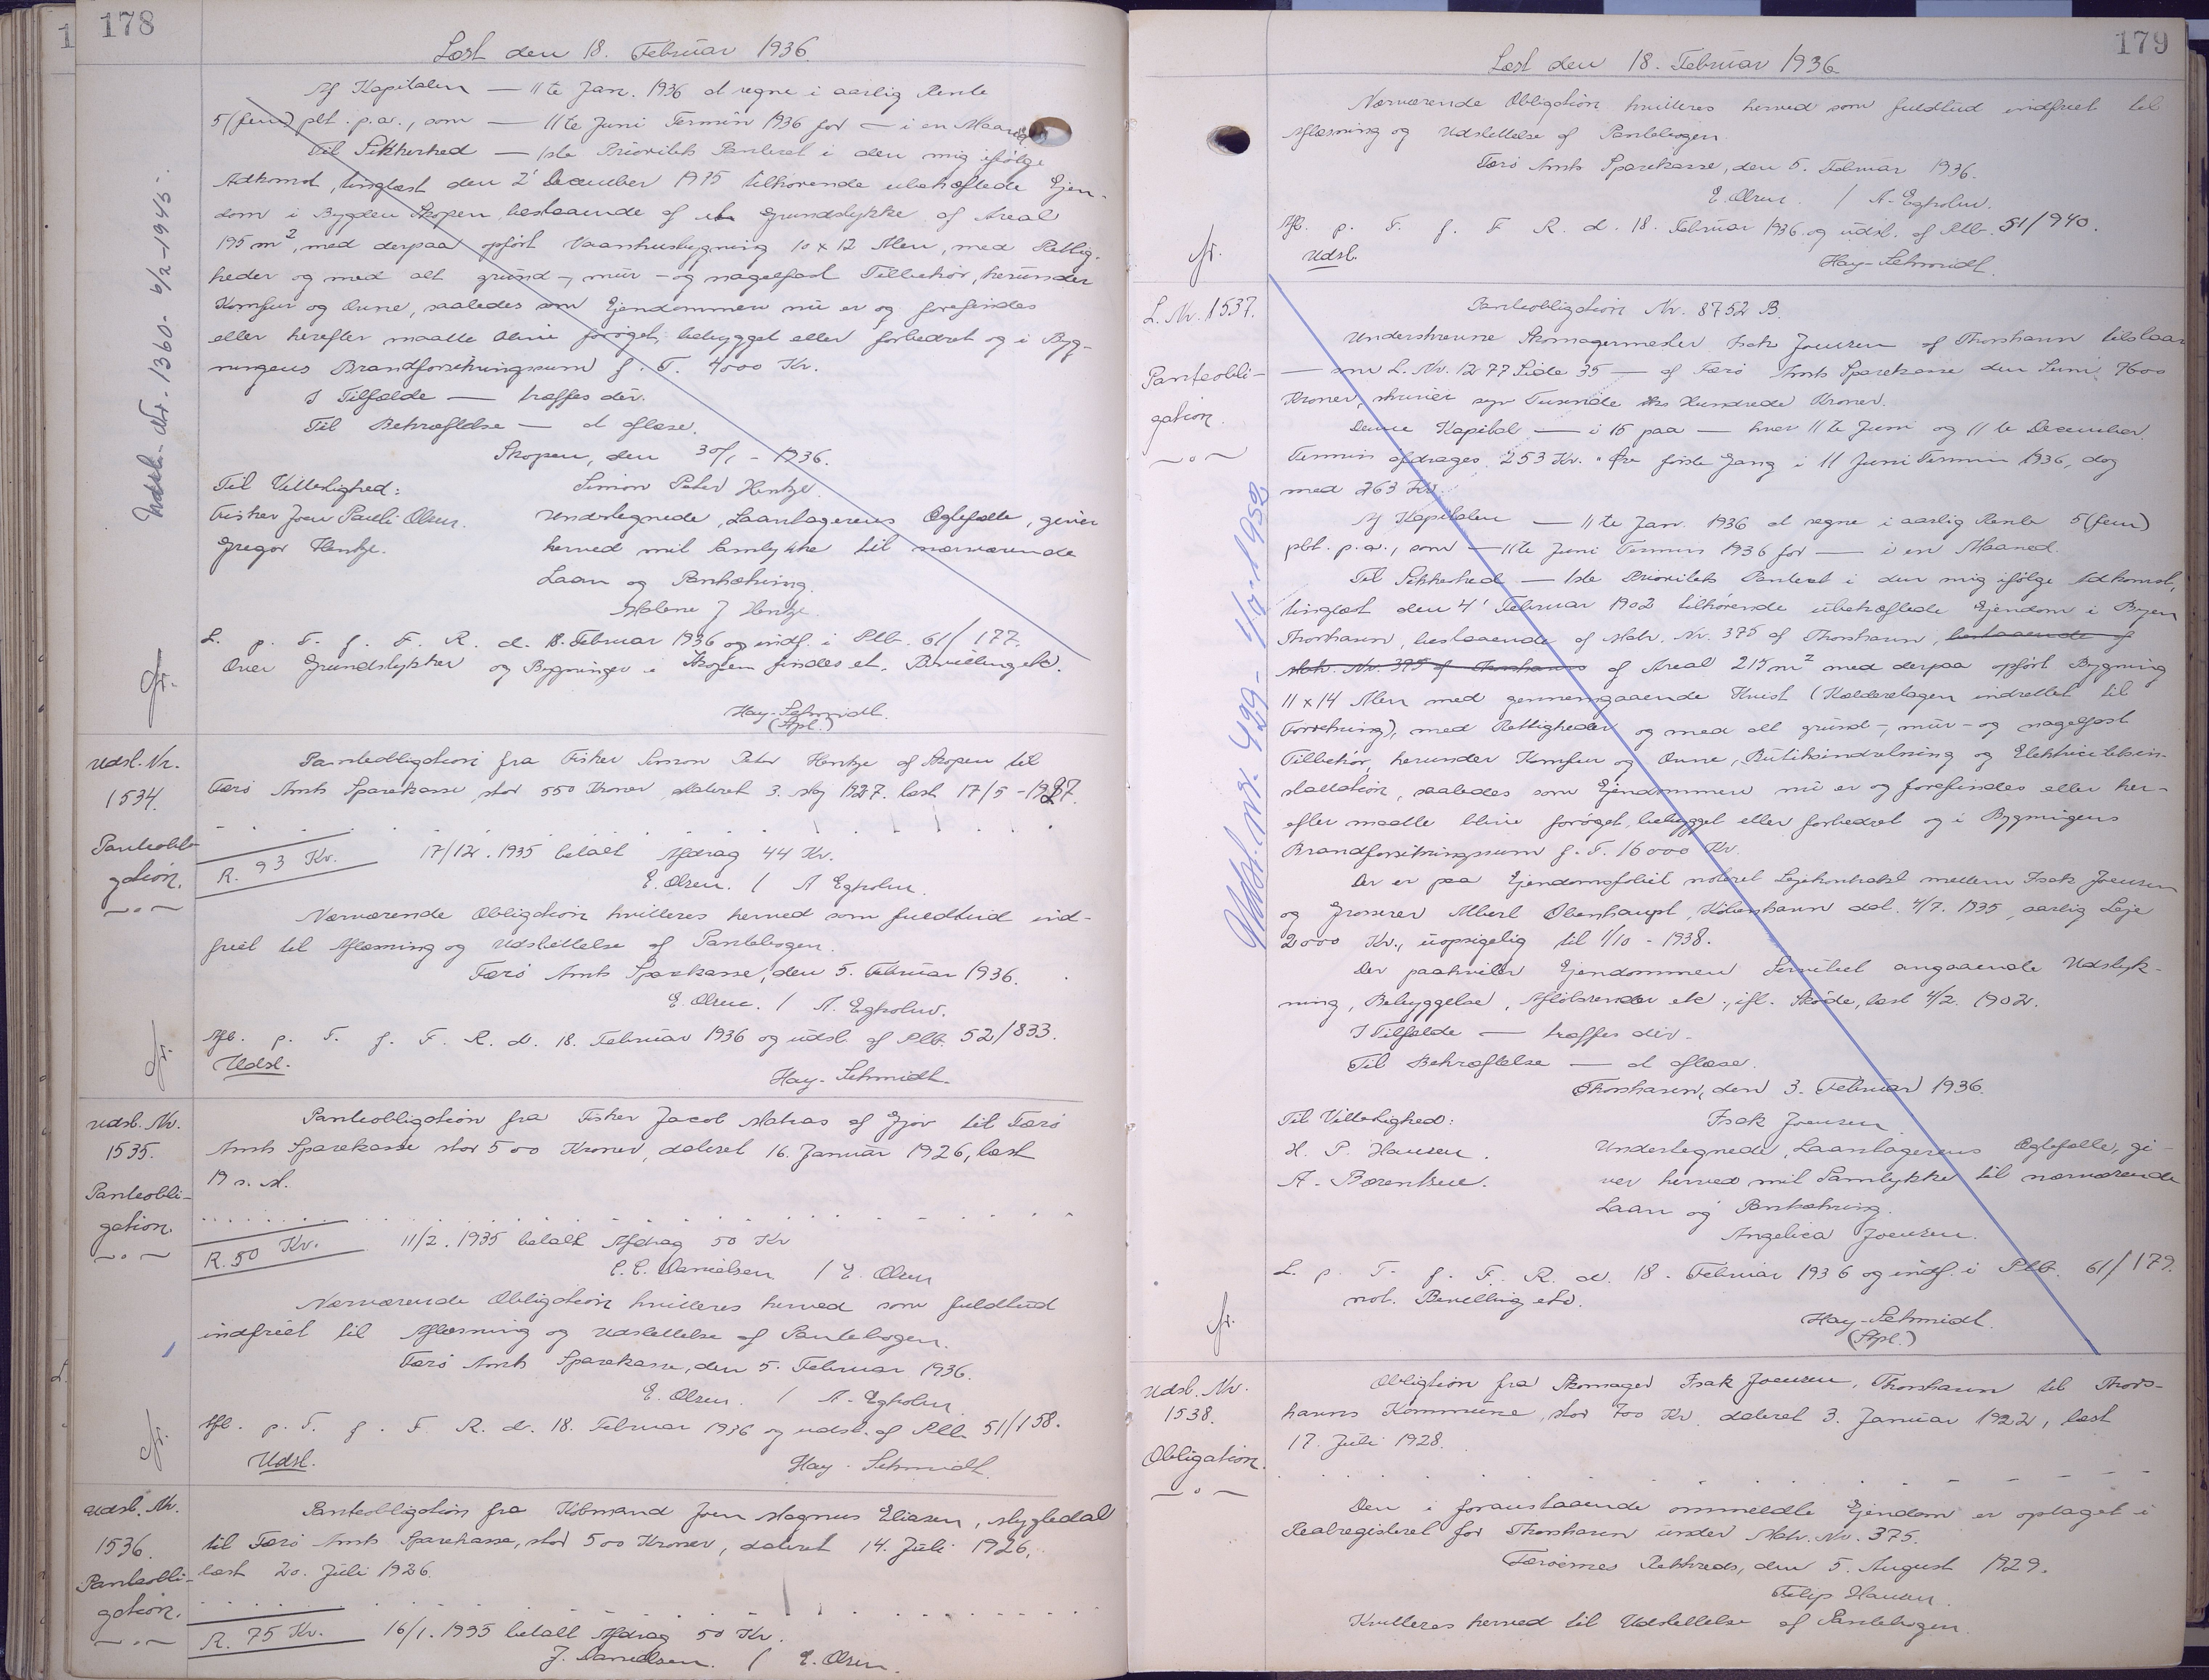 178
Læst den 18. Februar 1936.
Af Kapitalen — 11te Jan. 1936 at regne i aarlig Rente
5 (fem) pct. p.a., som — 11te Juni Termin 1936 for — i en Maaned.
Til Sikkerhed — 1ste Prioritets Panteret i den mig ifølge
Adkomst, tinglæst den 2' December 1935 tilhørende ubehæftede Ejen-
dom i Bygden Skopen, bestaaende af et Grundstykke af Areal
195 m², med derpaa opført Vaaningshusbygning 10 x 12 Alen, med Rettig-
heder og med alt grund-, mur- og nagelfast Tilbehør, herunder
Komfur og Ovne, saaledes som Ejendommen nu er og forefindes
eller herefter maatte blive forøget, bebygget eller forbedret og i Byg-
ningens Brandforsikringssum f. T. 4000 Kr.
I Tilfælde — træffes div.
Til Bekræftelse — at aflæse.
Skopen, den 30/1 - 1936.
Til Vitterlighed: Simon Peter Hentze.
Fisker Joen Pauli Olsen. Undertegnede, Laantagerens Ægtefælle, giver
Gregor Hentze. herved mit Samtykke til nærværende
Laan og Pantsætning.
Malene J Hentze.
L. p. T. f. F. R. d. 18. Februar 1936 og indf. i Ptb. 61/177.
Over Grundstykker og Bygninger i Skopen findes et. Bevilling etc.
Hay-Schmidt.
(Spl.)
Udsl.-Nr. 1360- 6/2-1945.
Udsl. Nr.
1534.
Panteobli-
gation.
Panteobligation fra Fisker Simon Peter Hentze af Skopen til
Færø Amts Sparekasse, stor 550 Kroner dateret 3. Maj 1927. læst 17/5 - 1927.
R. 93 Kr. 17/12. 1935 betalt Afdrag 44 Kr.
E. Olsen. / A Egholm.
Nærværende Obligation kvitteres herved som fuldtud ind-
friet til Aflæsning og Udslettelse af Pantebogen.
Færø Amts Sparekasse, den 5. Februar 1936.
E. Olsen. / A. Egholm.
Afl. p. T. f. F. R. d. 18. Februar 1936 og udsl. af Ptb. 52/833.
Udsl.
Hay-Schmidt.
Udsl. Nr.
1535.
Panteobli-
gation.
Panteobligation fra Fisker Jacob Matras af Gjov til Færø
Amts Sparekasse stor 500 Kroner, dateret 16. Januar 1926, læst
19 s. M.
R. 50 Kr. 11/2. 1935 betalt Afdrag 50 Kr
C. C. Danielsen / E. Olsen
Nærværende Obligation kvitteres herved som fuldtud
indfriet til Aflæsning og Udslettelse af Pantebogen.
Færø Amts Sparekasse, den 5. Februar 1936.
E. Olsen. / A. Egholm.
Afl. p. T. f. F. R. d. 18. Februar 1936 og udsl. af Ptb. 51/158.
Udsl.
Hay-Schmidt.
Udsl. Nr.
1536.
Panteobli-
gation.
Panteobligation fra Købmand Joen Magnus Eliasen, Mygledal
til Færø Amts Sparekasse, stor 500 Kroner, dateret 14. Juli 1926,
læst 20. Juli 1926.
R. 75 Kr. 16/1. 1935 betalt Afdrag 50 Kr.
J. Danielsen. / E. Olsen.
179
Læst den 18. Februar 1936
Nærværende Obligation kvitteres herved som fuldtud indfriet til
Aflæsning og Udslettelse af Pantebogen
Færø Amts Sparekasse, den 5. Februar 1936.
E. Olsen. / A. Egholm.
Afl. p. T. f. F. R. d. 18. Februar 1936 og udsl. af Ptb. 51/940.
Udsl.
Hay-Schmidt.
L. Nr. 1537.
Panteobli-
gation.
Panteobligation Nr. 8752 B.
Underskrevne Skomagermester Isak Joensen af Thorshavn tilstaar
— som L. Nr. 1277 Side 35 — af Færø Amts Sparekasse den Sum 7600
Kroner, skriver syv Tusinde seks Hundrede Kroner.
Denne Kapital — i 15 paa — hver 11te Juni og 11te December
Termin afdrages 253 Kr. " Øre første Gang i 11 Juni Termin 1936, dog
med 263 Kr.
Af Kapitalen — 11te Jan. 1936 at regne i aarlig Rente 5 (fem)
pct. p.a., som — 11te Juni Termin 1936 for — i en Maaned.
Til Sikkerhed — 1ste Prioritets Panteret i den mig ifølge Adkomst,
tinglæst den 4' Februar 1902 tilhørende ubehæftede Ejendom i Byen
Thorshavn, bestaaende af Matr. Nr. 375 af Thorshavn, bestaaende af
Matr. Nr. 375 af Thorshavn af Areal 215 m² med derpaa opført Bygning
11 x 14 Alen med gennemgaaende Kvist (Kælderetagen indrettet til
Forretning), med Rettigheder og med alt grund-, mur- og nagelfast
Tilbehør, herunder Komfur og Ovne, Butiksindretning og Elektricitetsin-
stallation, saaledes som Ejendommen nu er og forefindes eller her-
efter maatte blive forøget, bebygget eller forbedret og i Bygningens
Brandforsikringssum f. T. 16000 Kr.
Der er paa Ejendomsfoliet noteret Lejekontrakt mellem Isak Joensen
og Grosserer Albert Obenhaupt, København dat. 4/7. 1935, aarlig Leje
2000 Kr., uopsigelig til 1/10 - 1938.
Der paahviler Ejendommen Servitut angaaende Udstyk-
ning, Bebyggelse, Afløbsrender etc., ifl. Skøde, læst 4/2. 1902.
I Tilfælde — træffes div.
Til Bekræftelse — at aflæse.
Thorshavn, den 3. Februar 1936.
Til Vitterlighed: Isak Joensen
H. P. Hansen. Undertegnede, Laantagerens Ægtefælle, gi-
A. Bærentsen. ver herved mit Samtykke til nærværende
Laan og Pantsætning.
Angelica Joensen.
L. p. T. f. F. R. d. 18. Februar 1936 og indf. i Ptb. 61/179.
not. Bevilling etc.
Hay-Schmidt.
(Spl.)
Udsl. nr. 499- 4/9-1952
Udsl. Nr.
1538.
Obligation.
Obligation fra Skomager Isak Joensen, Thorshavn til Thors-
havns Kommune, stor 700 Kr. dateret 3. Januar 1922, læst
17. Juli 1928.
Den i foranstaaende ommeldte Ejendom er optaget i
Realregisteret for Thorshavn under Matr. Nr. 375.
Færøernes Retskreds, den 5. August 1929.
Filip Hansen.
Kvitteres herved til Udslettelse af Pantebogen.